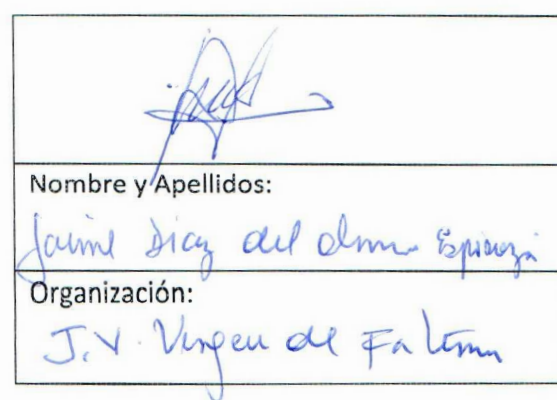 Nombre y Apellidos:
Jaime Diaz del Olmo Espinoza
Organización:
J.V. Virgen de Fatima